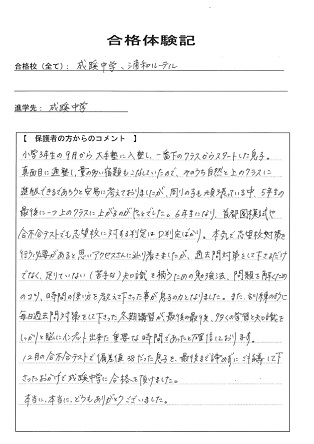 合格体験記
合格校（全て）： 成蹊中学、浦和ルーテル
進学先： 成蹊中学
【 保護者の方からのコメント 】
小学3年生の9月から大手塾に入塾し、一番下のクラスからスタートした息子。
真面目に通塾し、量の多い宿題もこなしていたので、そのうち自然と上のクラスに
進級できるであろうと安易に考えておりましたが、周りの子も頑張っている中、5年生の
最後に一つ上のクラスに上がるのがやっとでした。6年生になり、首都圏模試や
合不合テストでも志望校に対する判定はD判定ばかり。本気で志望校対策を
行う必要があると思いアクセスさんに辿り着きましたが、過去問対策をして下さるだけ
でなく、足りていない（苦手な）知識を補うための勉強法、問題を解くため
のコツ、時間の使い方を教えて下さった事が息子の力となりました。また、
毎日過去問対策をして下さった冬期講習が、最後の最後、多くの言葉と知識を
しっかりと脳にインプット出来た重要な時間であったと確信しております。
12月の合不合テストで偏差値38だった息子を、最後まで諦めずにご指導して下
さったおかげで成蹊中学に合格を頂けました。
本当に、本当に、どうもありがとうございました。